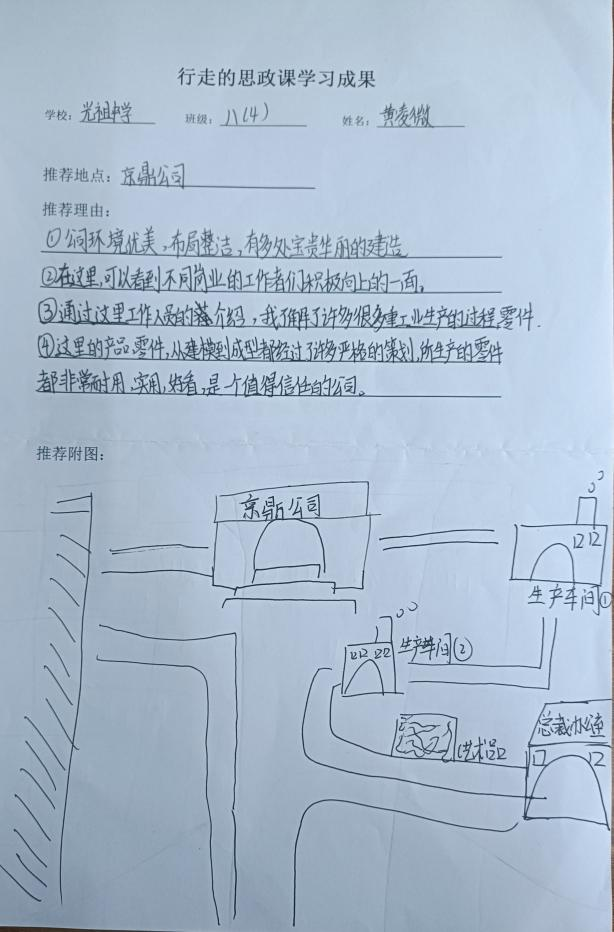 行走的思政课学习成果
学校：光祖中学 班级：八(4) 姓名：黄凌微
推荐地点：京鼎公司
推荐理由：
①公司环境优美，布局整洁，有多处宝贵华丽的建造
②在这里，可以看到不同岗业的工作者们积极向上的一面。
③通过这里工作人员的介绍，我了解了许多很多重工业生产的过程，零件.
④这里的产品，零件，从建模到成型都经过了许多严格的策划，所生产的零件
都非常耐用，实用，好看，是一个值得信任的公司。
推荐附图：
京鼎公司
生产车间①
生产车间②
艺术品区
总裁办公